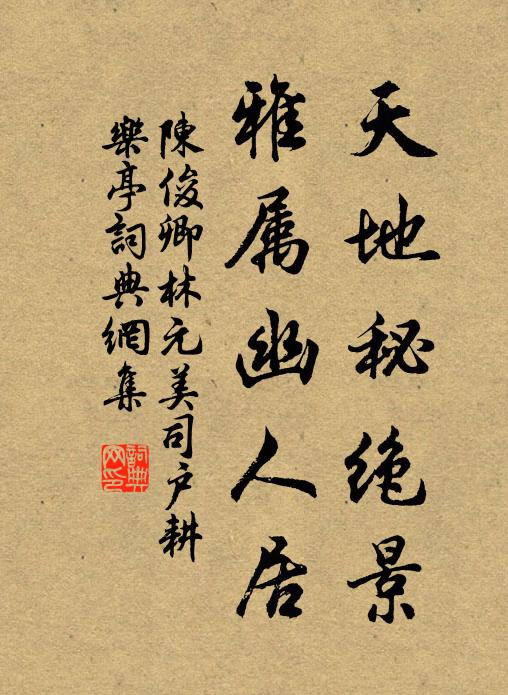 天地秘绝景
雅属幽人居
陳俊卿林元美司户耕
樂亭詞典網集
詞典
网印